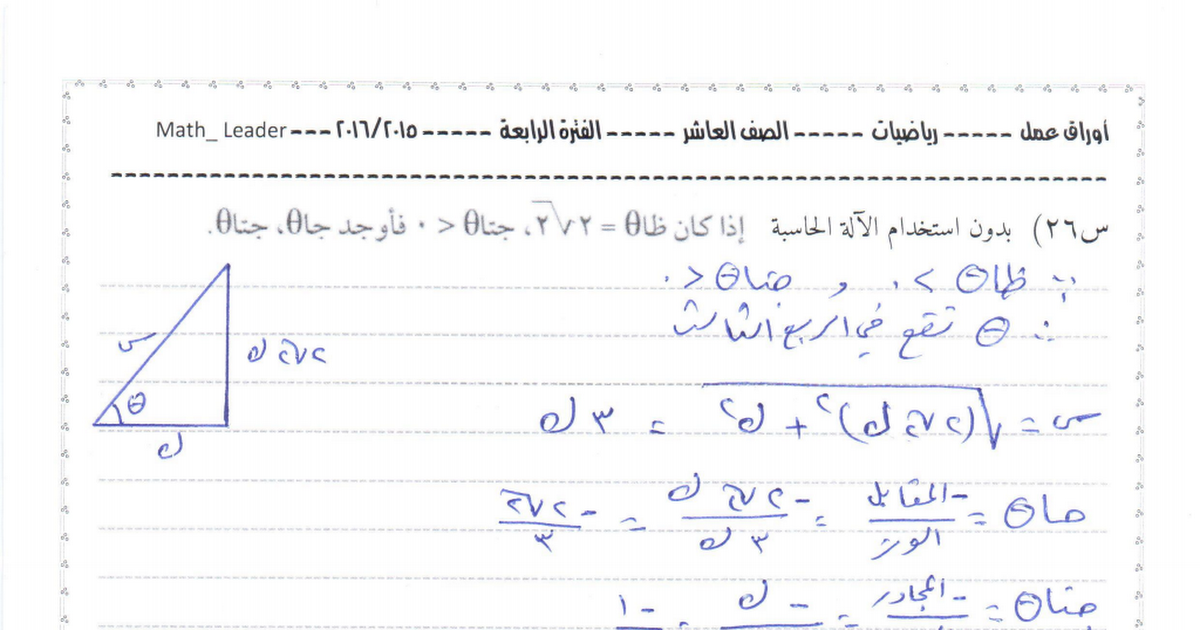 أوراق عمل ----- رياضيات ----- الصف العاشر ----- الفترة الرابعة ----- ٢٠١٦/٢٠١٥ --- Math_ Leader
س٢٦) بدون استخدام الآلة الحاسبة إذا كان ظاθ = ٢√٢، جتاθ < ٠ فأوجد جاθ، جتاθ.
∵ ظاθ > ٠ و جتاθ < ٠
∴ θ تقع في الربع الثالث
س
٢√٢ ك
θ
ك
س = √((٢√٢ ك)² + ك²) = ٣ ك
جاθ = -المقابل/الوتر = -٢√٢ ك/٣ ك = -٢√٢/٣
جتاθ = -المجاور = -ك = -١